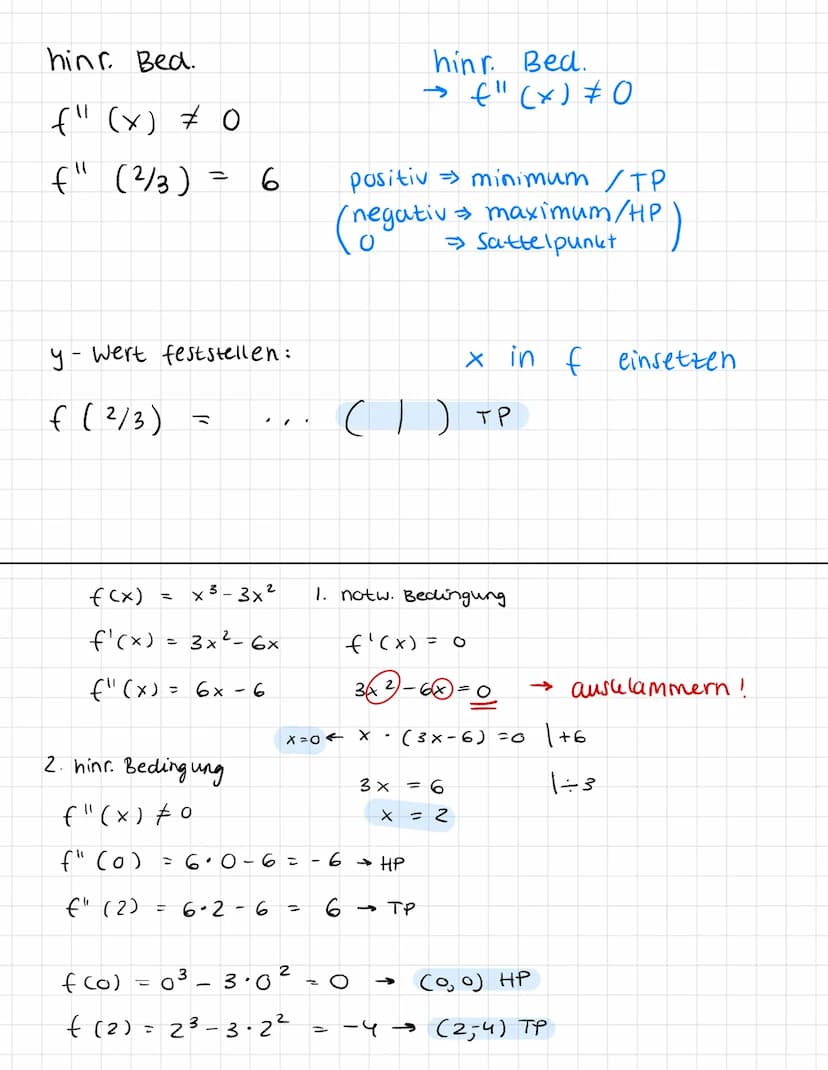 hinr. Bed.
hinr. Bed.
→ f'' (x) ≠ 0
f'' (x) ≠ 0
f'' (2/3) = 6
positiv ⇒ minimum / TP
(negativ ⇒ maximum/HP
0 ⇒ Sattelpunkt)
y - Wert feststellen:
x in f einsetzen
f (2/3) = ... ( | ) TP
f(x) = x³ - 3x²
1. notw. Bedingung
f'(x) = 3x² - 6x
f'(x) = 0
f''(x) = 6x - 6
3x² - 6x = 0 → ausklammern!
x=0 ← x · (3x-6) = 0 |+6
3x = 6 |÷3
x = 2
2. hinr. Bedingung
f''(x) ≠ 0
f'' (0) = 6·0-6 = -6 → HP
f'' (2) = 6·2-6 = 6 → TP
f(0) = 0³ - 3·0² = 0 → (0,0) HP
f (2) = 2³ - 3·2² = -4 → (2,-4) TP